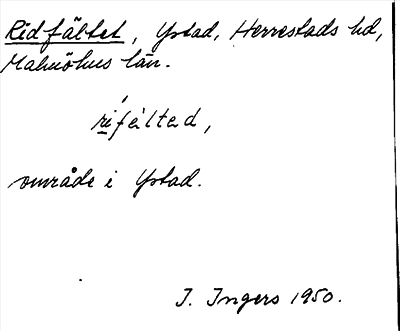 Ridfältet, Ystad, Herrestads hd,
Malmöhus län.
rifèlted,
område i Ystad.
I. Ingers 1950.